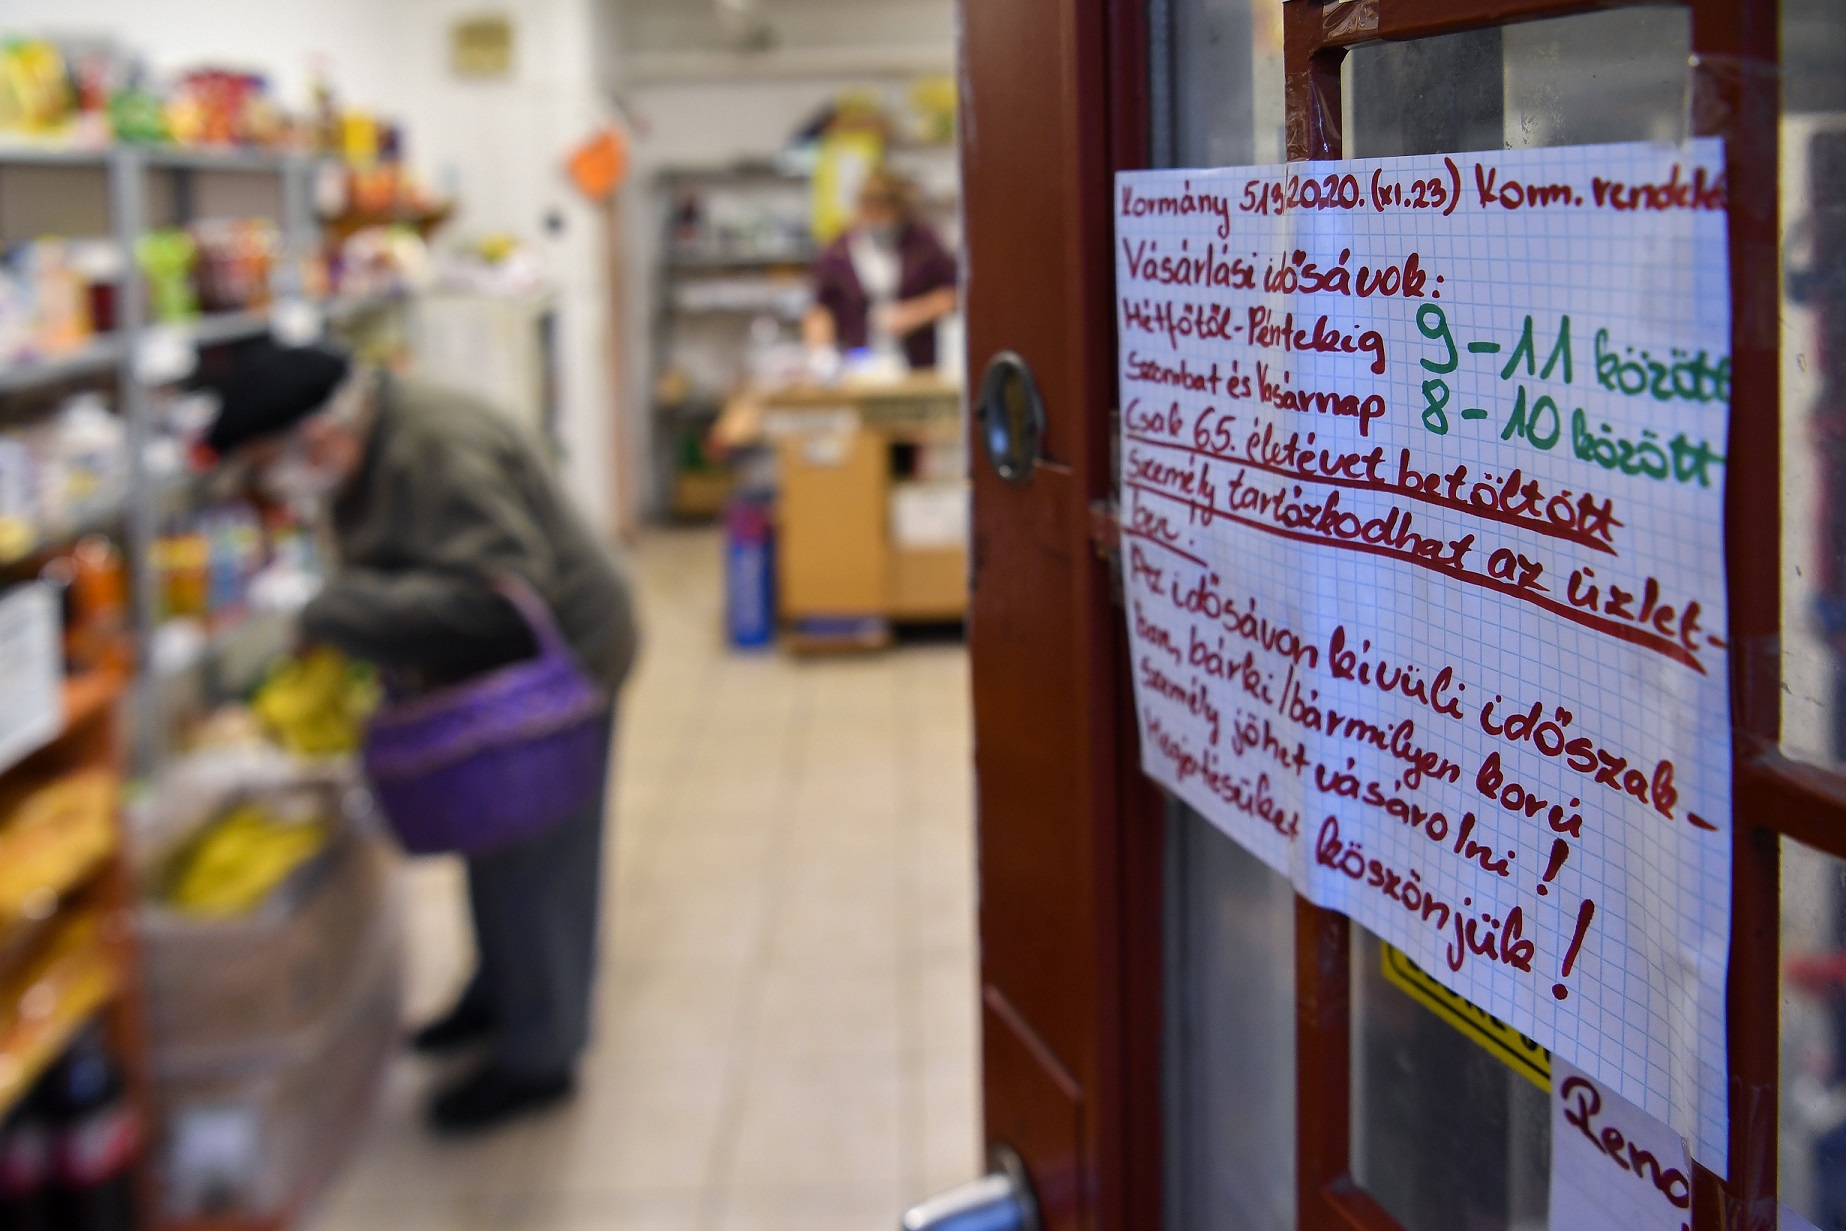 Kormány 513/2020. (XI.23) Korm. rendelet
Vásárlási idősávok:
Hétfőtől-Péntekig 9-11 között
Szombat és Vasárnap 8-10 között
Csak 65. életévet betöltött
személy tartózkodhat az üzlet-
ben!
Az idősávon kívüli időszak-
ban, bárki/bármilyen korú
személy jöhet vásárolni!
Megértésüket köszönjük!
Rend